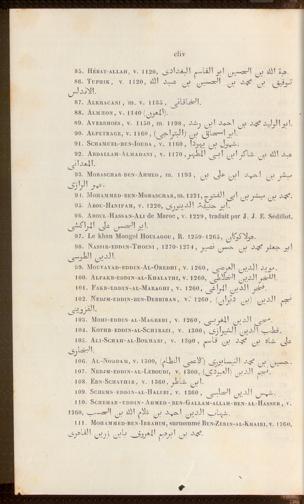 cliv
85. HÉBAT-ALLAH, v. 1120, هبة الله بن الحسين ابو القاسم البغدادى.
86. TUPHIK, v. 1120, توفيق بن محمد بن الحسين بن عبد الله
الاندلس.
87. ALKHACANI, m. v. 1135,
88. ALMEON, v. 1140
89. AVERRHOÈS, v. 1150, m. 1198, ابو الوليد محمد بن احمد ابن رشد.
90. ALPETRAGE, v. 1160, ابو اسحاق بن (البتراجى).
91. SCHAMUEL-BEN-IOUDA, v. 1160,
92. ABDALLAH-ALMADANI, v. 1170, عبد الله بن شاكر ابن ابى المطهر
المعدانى.
93. MOBASCHAR-BEN-AHMED, m. 1193, مبشر بن احمد ابن على بن
عمر الرازى.
94. MOHAMMED-BEN-MOBASCHAR, m. 1221, محمد بن مبشر بن ابى الفتوح.
95. ABOU-HANIFAH, v. 1220, ابو حنيفة الدينورى.
96. ABOUL-HASSAN-ALI de Maroc, v. 1229, traduit par J. J. E. Sédillot,
ابو الحسن على المراكشى.
97. Le khan Mongol HOULAGOU, R. 1259-1265, هولاكوخان.
98. NASSIR-EDDIN-THOUSI, 1270-1274, ابو جعفر محمد بن حسن نصير
الدين الطوسى.
99. MOUVAYAD-EDDIN-AL-OREDHI, v. 1260, مويد الدين العرضى.
100. ALFAKR-EDDIN-AL-KHALATHI, v. 1260, الفخر الدين الخلاطى.
101. FAKR-EDDIN-AL-MARAGHI, v. 1260, فخر الدين المراغى.
102. NEDJM-EDDIN-BEN-DEBBIRAN, v. 1260, نجم الدين (بن دبيران)
القزوينى.
103. MOHI-EDDIN-AL-MAGREBI, v. 1260, محيى الدين المغربى.
104. KOTHB-EDDIN-AL-SCHIRAZI, v. 1300, قطب الدين الشيرازى.
105. ALI-SCHAH-AL-BOKHARI, v. 1300, على شاه بن محمد بن قاسم
البخارى.
106. AL-NODDAM, v. 1300, حسين بن محمد النيسابورى (الاعمى النظام).
107. NEDJM-EDDIN-AL-LEBOUDI, v. 1300, نجم الدين (اللبودى).
108. EBN-SCHATHIR, v. 1360, ابن شاطر.
109. SCHEMS-EDDIN-AL-HALEBI, v. 1360, شمس الدين الحلبى.
110. SCHEHAB-EDDIN-AHMED-BEN-GALLAM-ALLAH-BEN-AL-HASSEB, v.
1360, شهاب الدين احمد بن غلام الله بن الحسب.
111. MOHAMMED-BEN-IBRAHIM, surnommé BEN-ZERIN-AL-KHAIRI, v. 1360,
محمد بن ابرهيم المعروف بابن زرين